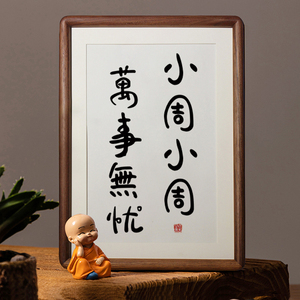 小周小周
萬事無忧